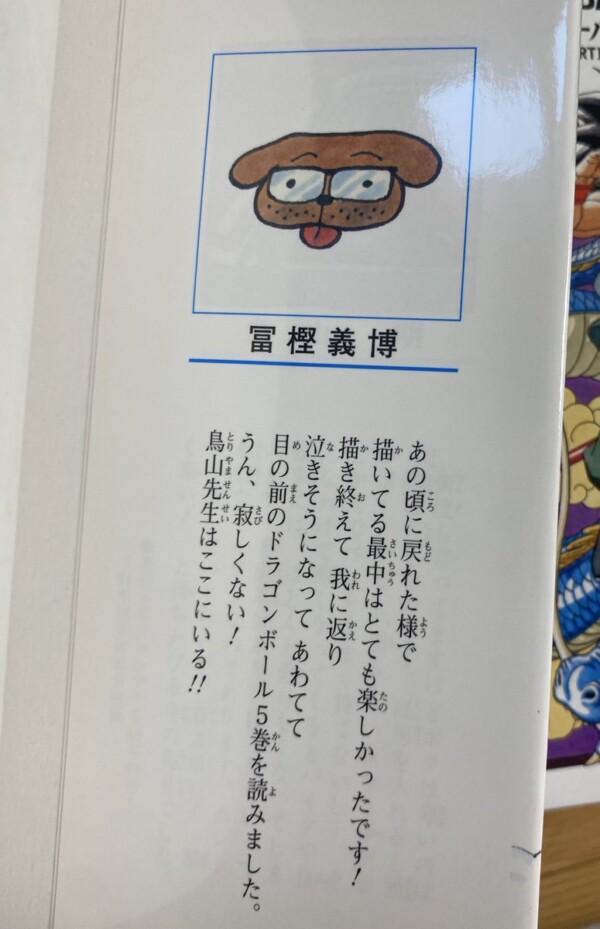 冨樫義博
あの頃に戻れた様で
描いてる最中はとても楽しかったです！
描き終えて 我に返り
泣きそうになって あわてて
目の前のドラゴンボール5巻を読みました。
うん、寂しくない！
鳥山先生はここにいる!!